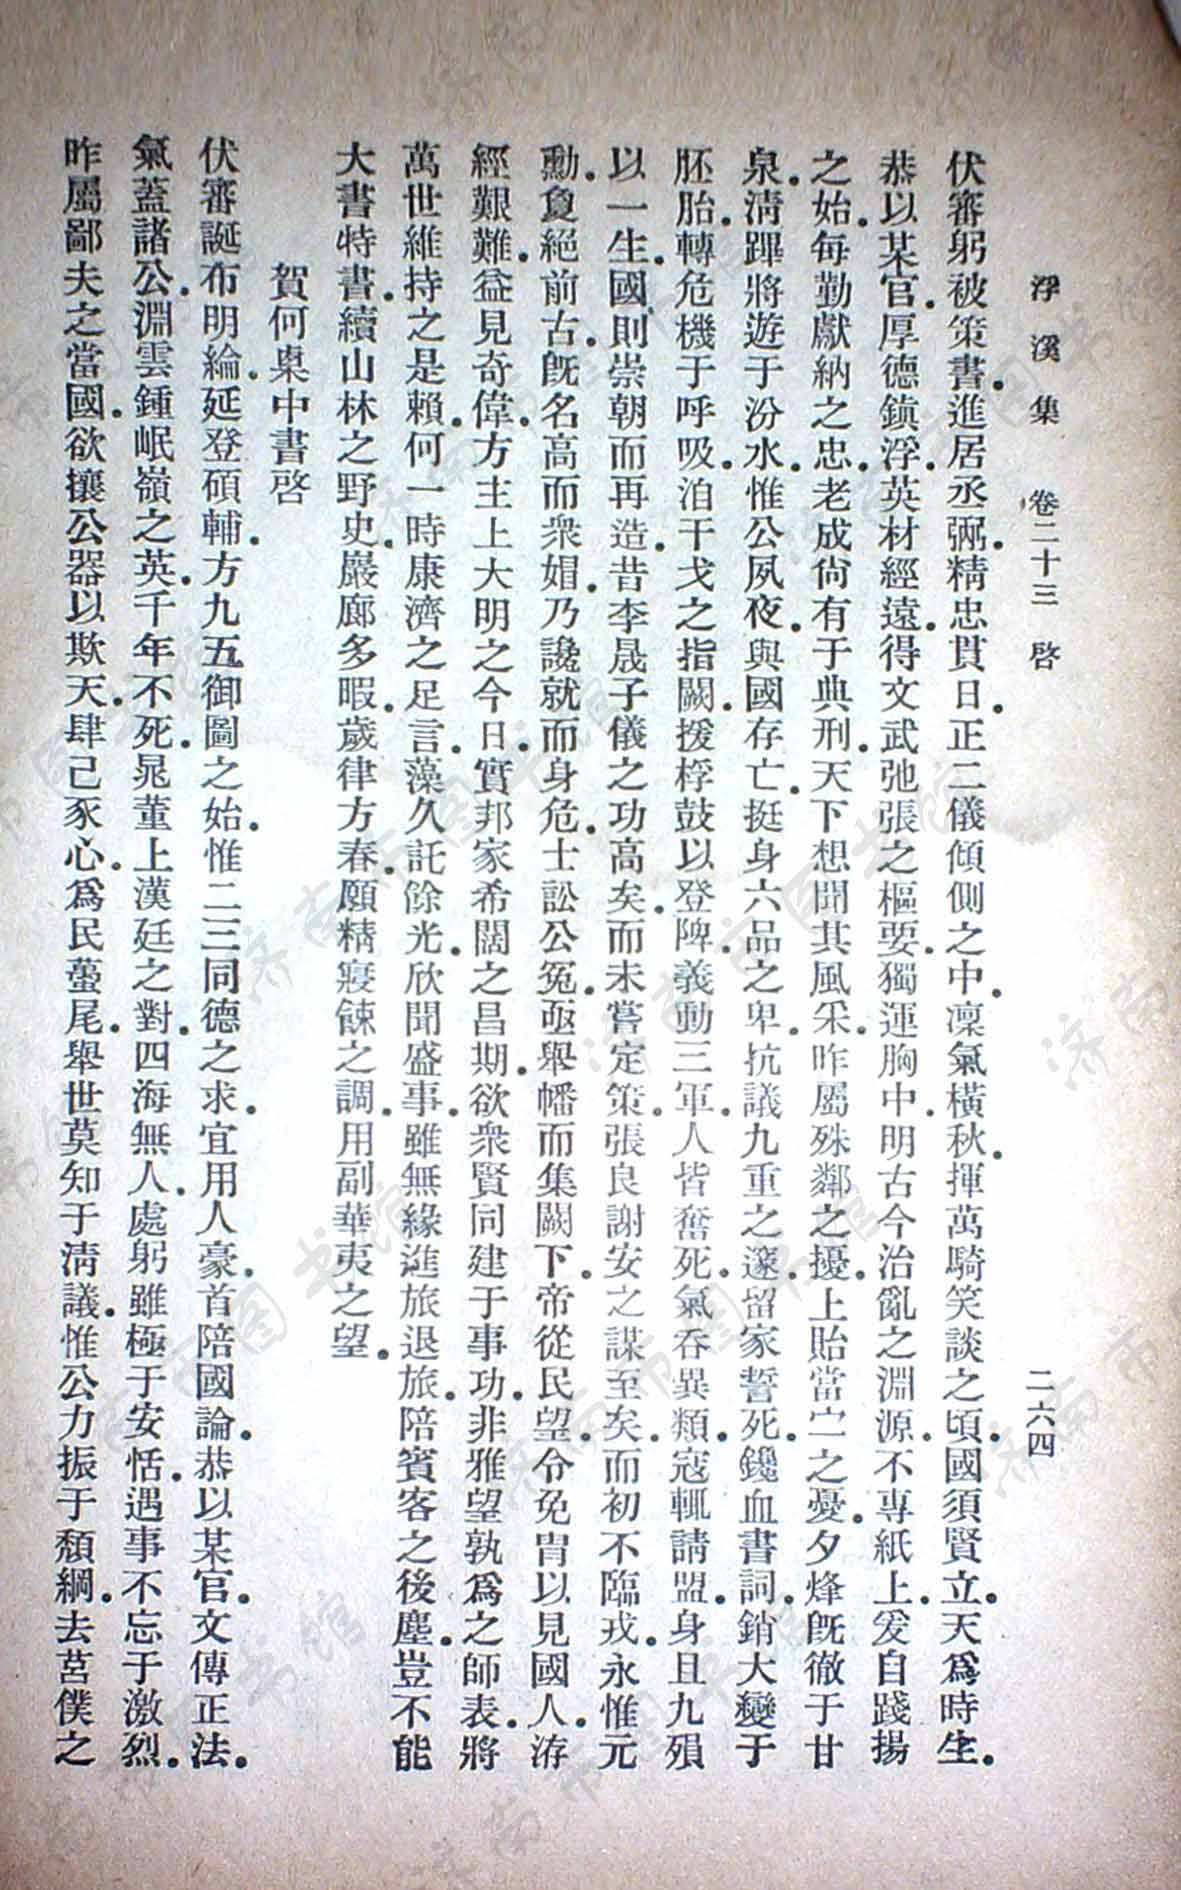 浮溪集 卷二十三 啓 二六四
伏審躬被策書。進居丞弼。精忠貫日。正二儀傾側之中。凜氣橫秋。揮萬騎笑談之頃。國須賢立。天爲時生。
恭以某官。厚德鎭浮。英材經遠。得文武弛張之樞要。獨運胸中。明古今治亂之淵源。不專紙上。爰自踐揚
之始。每勤獻納之忠。老成尙有于典刑。天下想聞其風采。昨屬殊鄰之擾。上貽當宁之憂。夕烽旣徹于甘
泉。淸蹕將遊于汾水。惟公夙夜。與國存亡。挺身六品之卑。抗議九重之邃。留家誓死。鑱血書詞。銷大變于
胚胎。轉危機于呼吸。洎干戈之指闕。援桴鼓以登陴。義動三軍。人皆奮死。氣吞異類。寇輒請盟。身且九殞
以一生。國則崇朝而再造。昔李晟子儀之功高矣。而未嘗定策。張良謝安之謀至矣。而初不臨戎。永惟元
勳。敻絕前古。旣名高而衆媢。乃讒就而身危。士訟公冤。亟舉幡而集闕下。帝從民望。令免冑以見國人。洊
經艱難。益見奇偉。方主上大明之今日。實邦家希闊之昌期。欲衆賢同建于事功。非雅望孰爲之師表。將
萬世維持之是賴。何一時康濟之足言。藻久託餘光。欣聞盛事。雖無緣進旅退旅。陪賓客之後塵。豈不能
大書特書。續山林之野史。巖廊多暇。歲律方春。願精寢餗之調。用副華夷之望。
賀何㮚中書啓
伏審誕布明綸。延登碩輔。方九五御圖之始。惟二三同德之求。宜用人豪。首陪國論。恭以某官。文傳正法。
氣蓋諸公。淵雲鍾岷嶺之英。千年不死。晁董上漢廷之對。四海無人。處躬雖極于安恬。遇事不忘于激烈。
昨屬鄙夫之當國。欲攘公器以欺天。肆己豕心。爲民蠆尾。舉世莫知于淸議。惟公力振于頹綱。去莒僕之